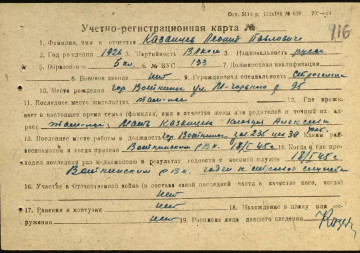 Учетно-регистрационная карта №
116
1. Фамилия, имя и отчество Казанцев Леонид Павлович
2. Год рождения 1926 3. Партийность ВЛКСМ 4. Национальность русск
5. Образование 5 кл. 6. № ВУС 133 7. Должностная квалификация
8. Военное звание нет 9. Гражданская специальность
10. Место рождения гор. Воткинск ул. М-Горького д 95
11. Последнее место жительства там-же 12. Где прожи-
вает в настоящее время семья (фамилия, имя и отчество жены или родителей и точный их ад-
рес) Мать Казанцева
13. Последнее место работы и должность гор. Воткинск 14. Каким рай-
военкоматом и когда призван Воткинским РВК 18/V-45 г. 15. Когда и где про-
ходил последний раз медкомиссию и результат годности к военной службе 18/V-45 г.
Воткинским РВК. годен к строевой службе
16. Участие в Отечественной войне (в составе какой последней части в качестве кого, когда)
нет
17. Ранения и контузии нет 18. Нахождение в плену или ок-
ружении нет 19. Роспись лица давшего сведения